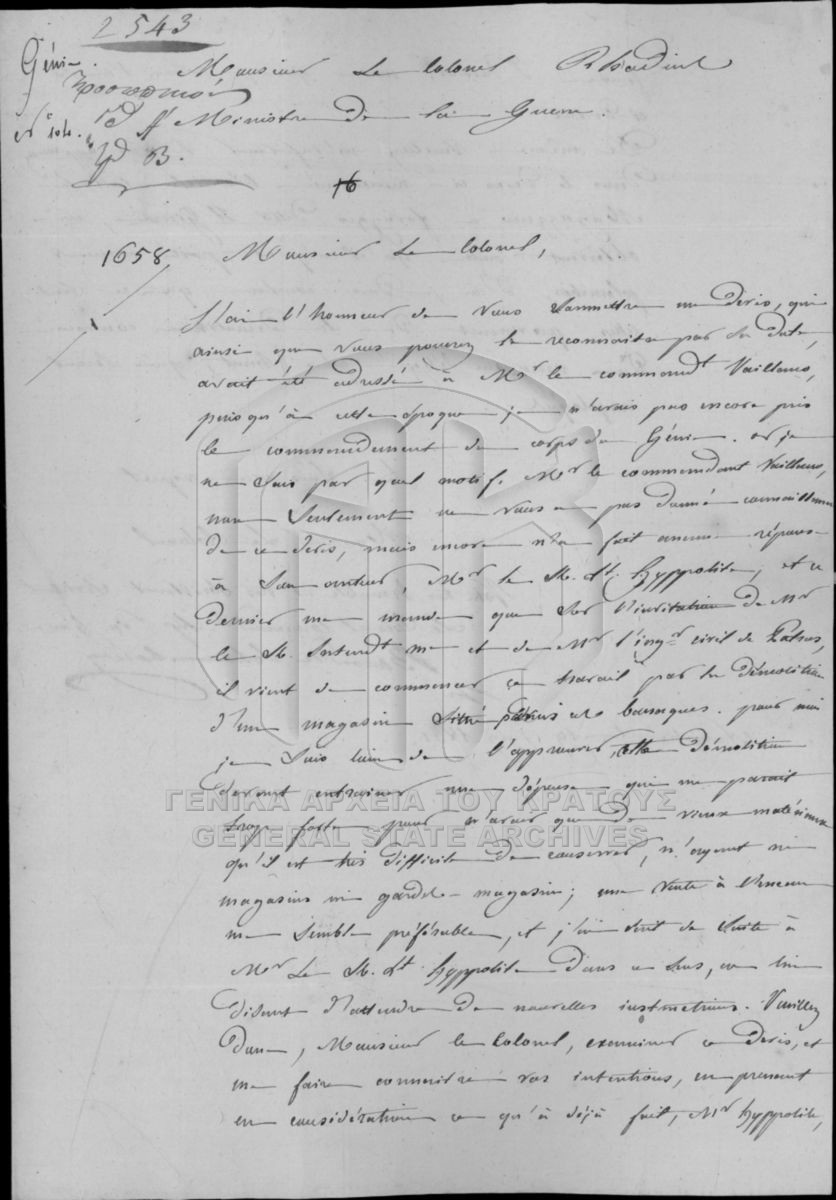 2543
Génie Monsieur Le Colonel Rhodius
Προσωπικόν
N° 104. Ministre De la Guerre.
B.
16
1658 Monsieur Le Colonel,
J'ai l'honneur de vous soumettre un devis, qui
ainsi que vous pouvez le reconnaitre par sa date,
avait été adressé à Mr le commandt Vaillans,
puis qu'à cette époque je n'avais pas encore pris
le commandement du corps du Génie. or je
ne sais par quel motif Mr le commandant Vaillans,
non seulement ne vous a pas donné connaissance
de ce devis, mais encore n'a fait aucune réponse
à son auteur, Mr le St. Lt. Hyppolite, et ce
dernier me mande que sur l'invitation de Mr
le St. Intendt me et de Mr l'ingr civil de Patras,
il vient de commencer ce travail par la démolition
d'un magasin situé baraques. pour moi
je suis loin de l'approuver, cette démolition
devant entrainer une dépense qui me parait
trop forte pour n'avoir que de vieux matériaux
qu'il est très difficile de conserver, n'ayant ni
magasins ni garde-magasin; une vente à l'encan
me semble préférable, et j'écris de suite à
Mr Le St. Lt Hyppolite dans ce sens, en lui
disant d'attendre de nouvelles instructions. Veuillez
donc, Monsieur le Colonel, examiner ce devis, et
me faire connaitre vos intentions, en prenant
en considération ce qu'à déjà fait, Mr Hyppolite,
ΓΕΝΙΚΑ ΑΡΧΕΙΑ ΤΟΥ ΚΡΑΤΟΥΣ
GENERAL STATE ARCHIVES